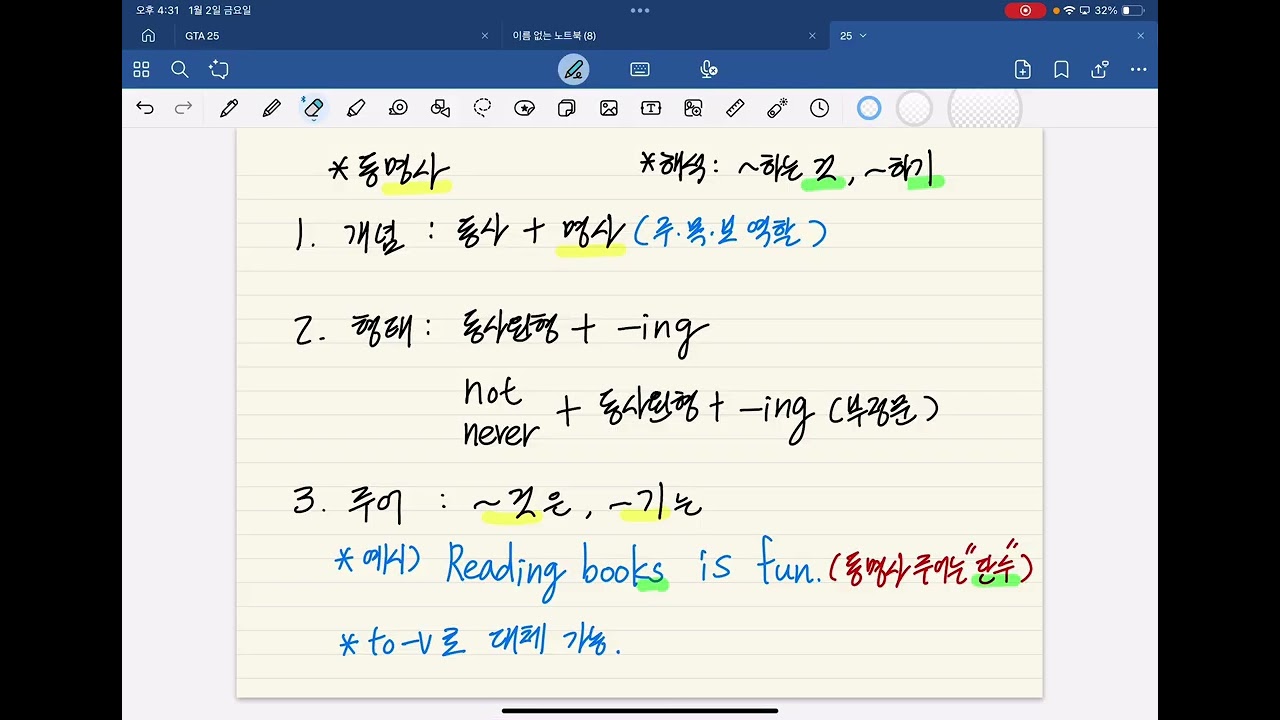 오후 4:31 1월 2일 금요일
32%
GTA 25
이름 없는 노트북 (8)
25
*동명사
*해석: ~하는 것, ~하기
1. 개념 : 동사 + 명사 (주·목·보 역할)
2. 형태 : 동사원형 + -ing
not
never + 동사원형 + -ing (부정문)
3. 주어 : ~것은, ~기는
*예시) Reading books is fun. (동명사 주어는 "단수")
*to-v로 대체 가능.